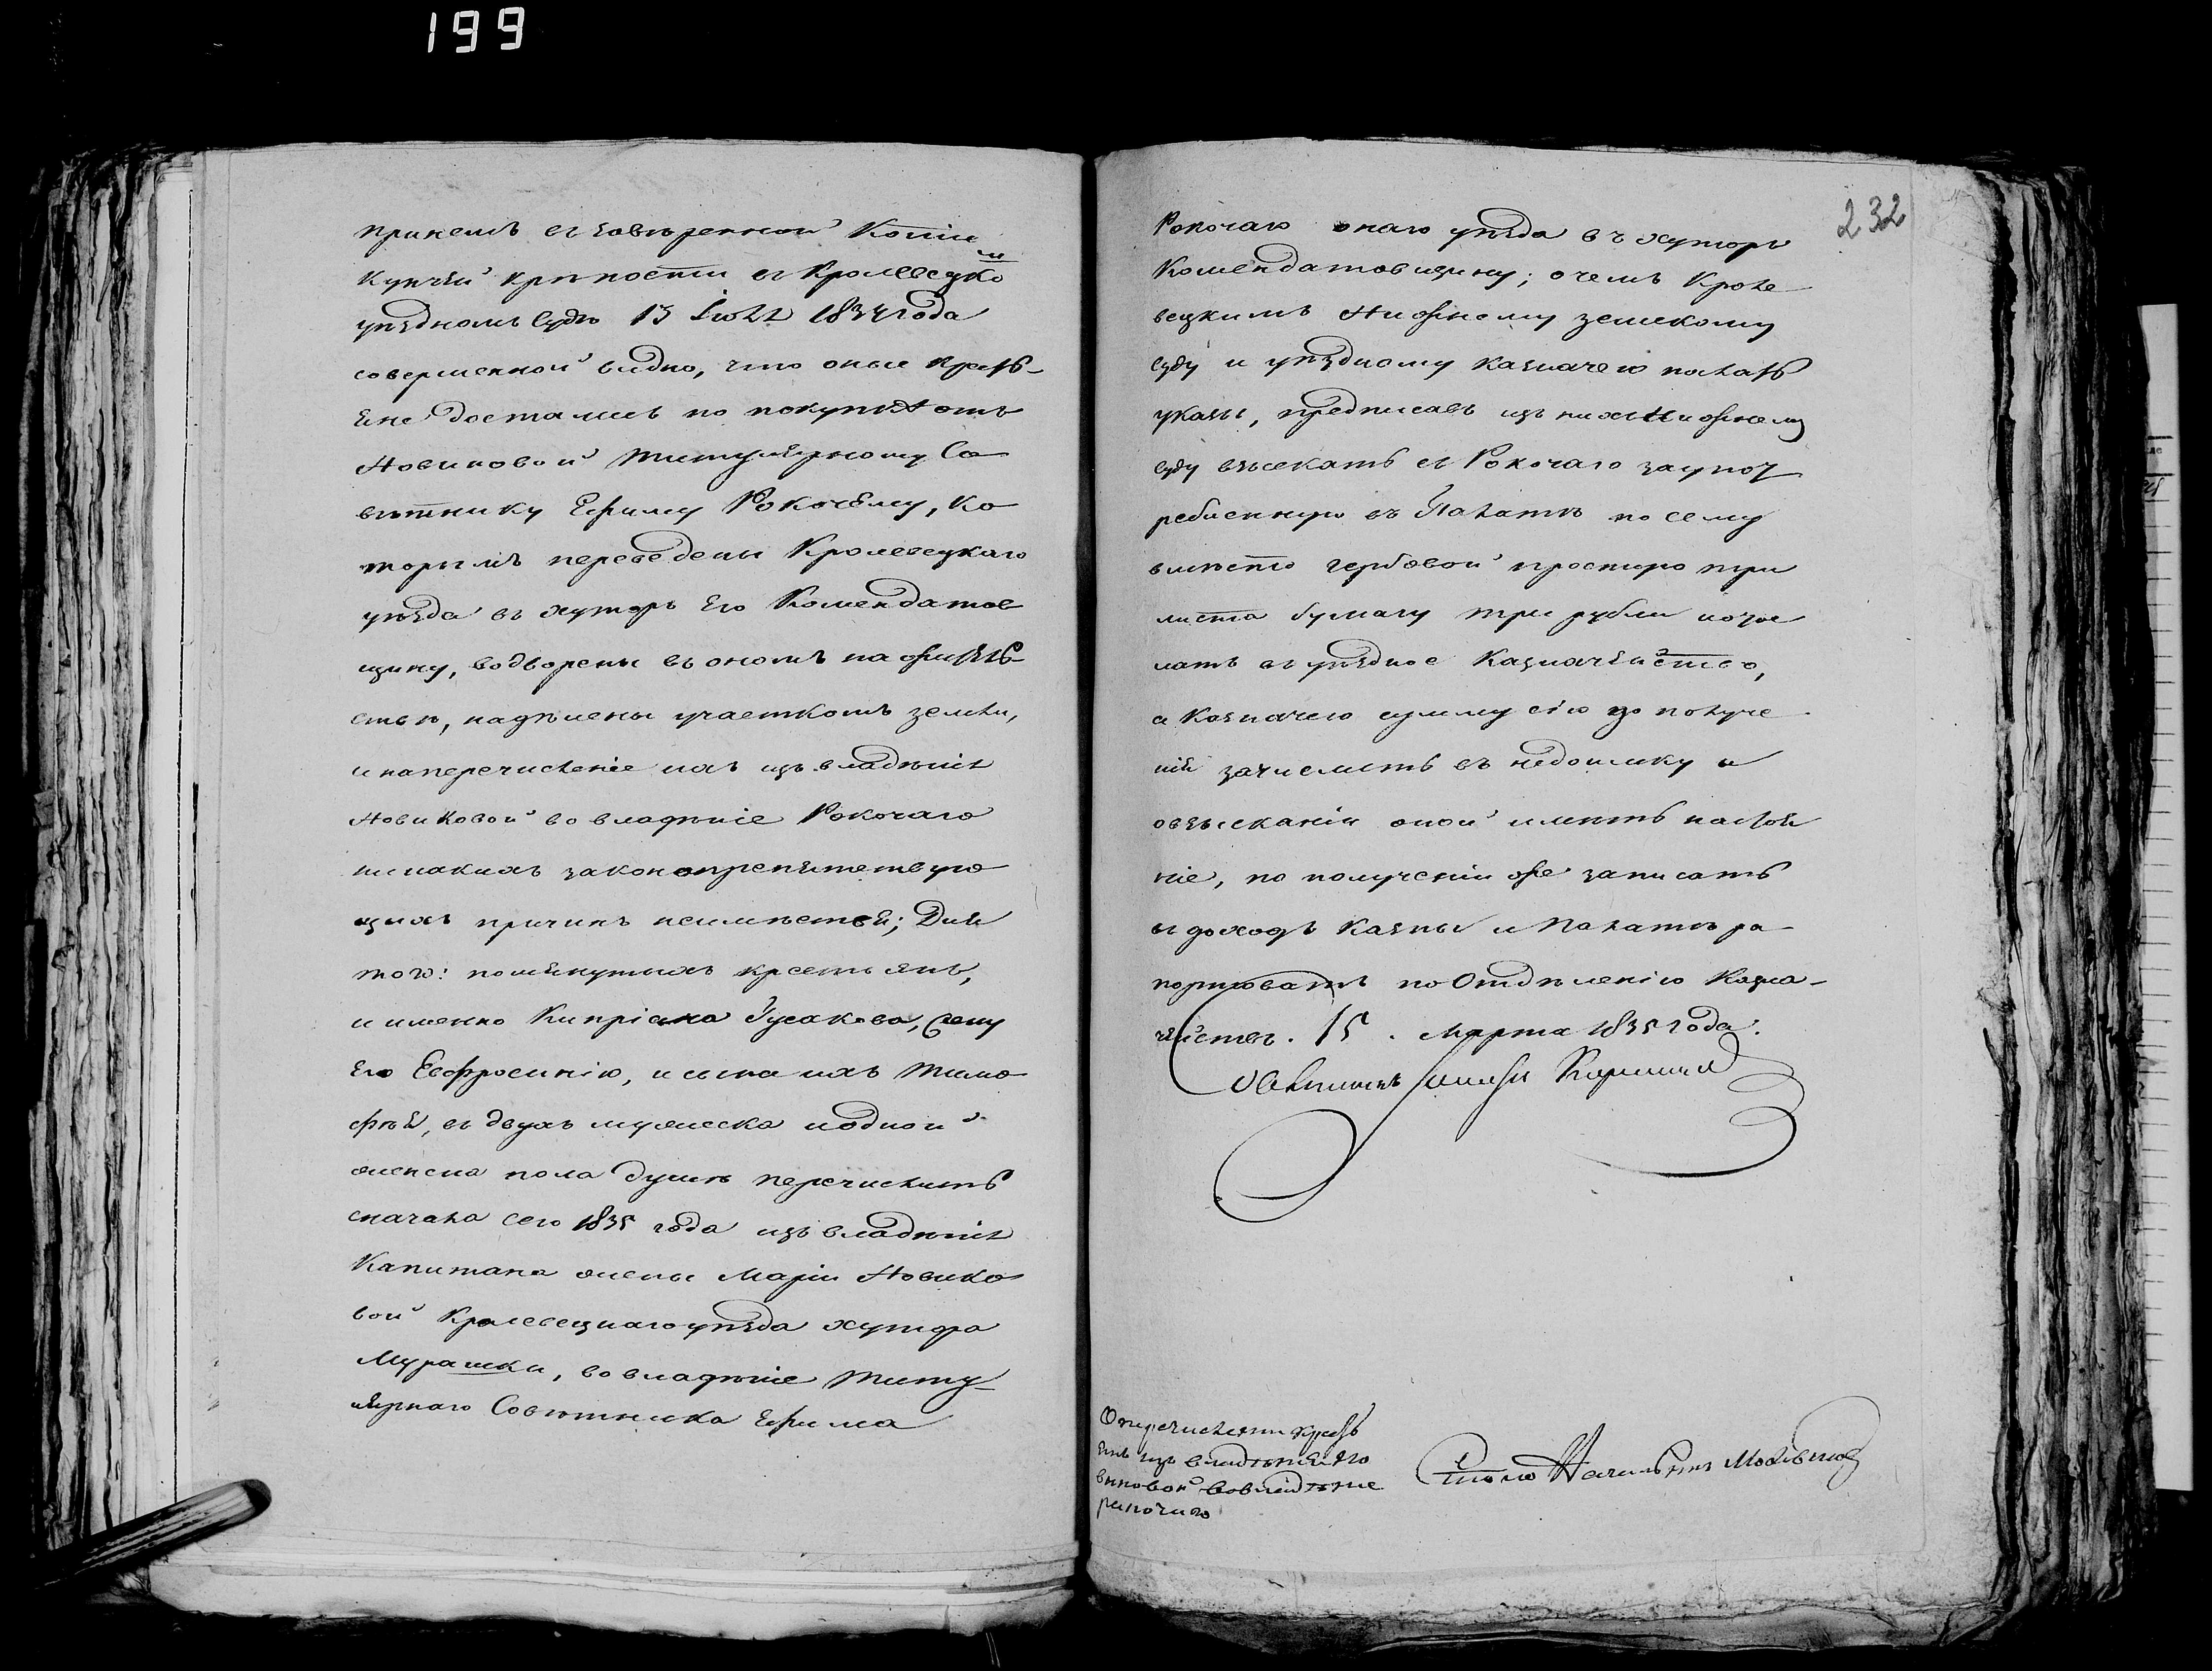 199
232
принемъ съ завѣренной Копіи
Купчей крѣпости съ Кролевецко
уѣздномъ Судѣ 13 Іюля 1834 года
совершенной видно, что оные кресть-
яне достались по покупкѣ отъ
Новиковой Титулярному Со
вѣтнику Ефиму Рокочему, Ко
торымъ переведены Кролевецкаго
уѣзда въ хуторъ Его Комендатов
щину, водворены въ ономъ на жительс-
тво, надѣлены участкомъ земли,
и на перечисленіе ихъ изъ владѣнія
Новиковой во владѣніе Рокочаго
никакихъ законопрепятствую
щихъ причинъ неимѣется; Для
того: помянутыхъ крестьянъ,
и именно Кипріана Гусакова, жену
Его Евфросинію, и сына ихъ Тимо
фея, въ двухъ мужеска и одной
женска пола душѣ перечислить
сначала сего 1835 года изъ владѣнія
Капитана жены Маріи Новико
вой Кролевецкаго уѣзда хутора
Мурашки, во владѣніе Титу-
лярнаго Совѣтника Ефима
Рокочаго онаго уѣзда въ хуторъ
Комендатовщину; о чемъ Кроле
вецкимъ Нижнему земскому
суду и уѣздному казначею послать
указы, предписавъ изъ нихъ Нижнему
суду взыскать съ Рокочаго за упот
ребленную въ Палатѣ по сему
вмѣсто гербовой простую три
листа бумагу три рубли и отос
лать въ уѣздное Казначейство,
а Казначею сумму сію до получе
нія зачислить въ недоимку и
о взысканіи оной имѣть настоя
ніе, по полученіи же записать
въ доходъ Казны и Палатѣ ра
портовать по Отдѣленію Казна-
чействъ. 15. Марта 1835 года.
Совѣтникъ
О перечисленіи кресть
янъ изъ владѣнія Но
виковой во владѣніе
рокочаго
Столо Начальникъ